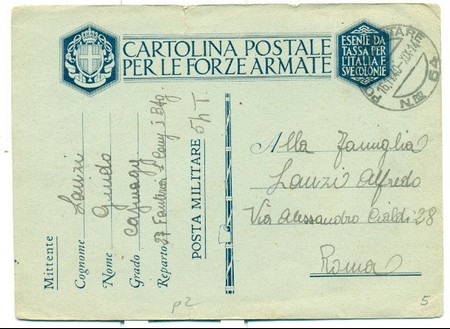 CARTOLINA POSTALE
PER LE FORZE ARMATE
ESENTE DA
TASSA PER
L'ITALIA E
SVE COLONIE
N. 82
64
Mittente
Cognome Lanzi
Nome Guido
Grado
Reparto 27 Fanteria
POSTA MILITARE
Alla Famiglia
Lanzi Alfredo
Via Alessandro Cialdi 28
Roma
p2
5